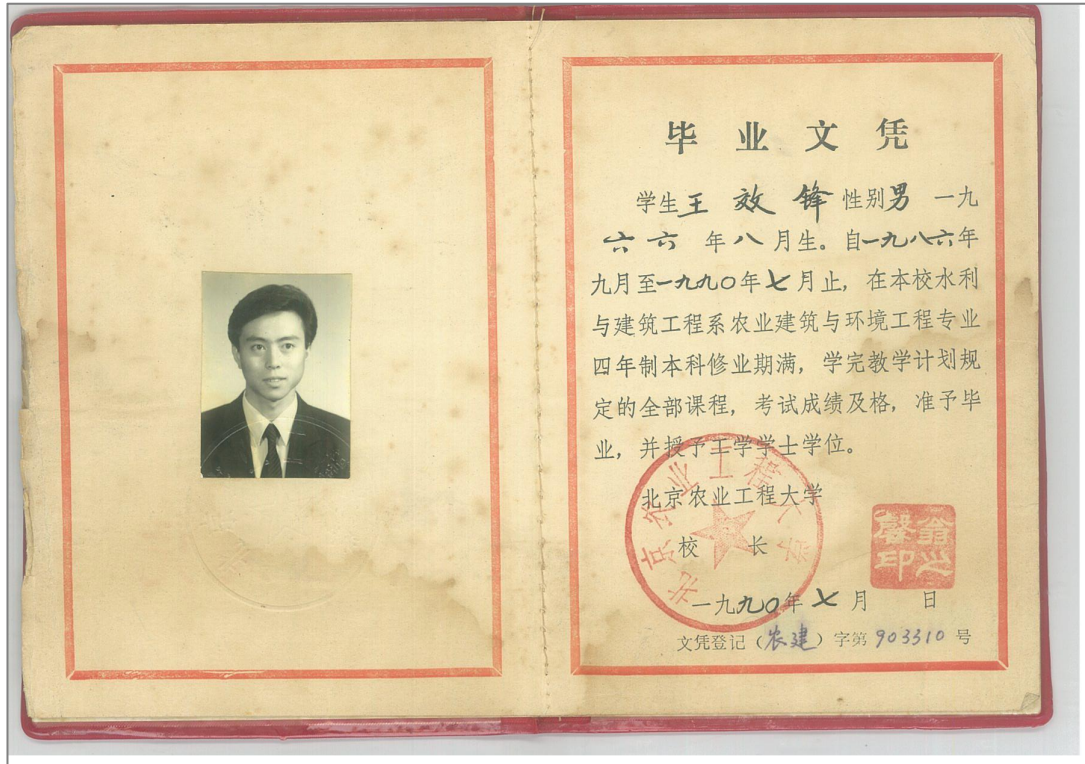 毕业文凭
学生王效锋性别男一九
六六年八月生。自一九八六年
九月至一九九〇年七月止，在本校水利
与建筑工程系农业建筑与环境工程专业
四年制本科修业期满，学完教学计划规
定的全部课程，考试成绩及格，准予毕
业，并授予工学学士学位。
北京农业工程大学
北京农业工程大学
校长
翁之馨印
一九九〇年七月 日
文凭登记（农建）字第903310号